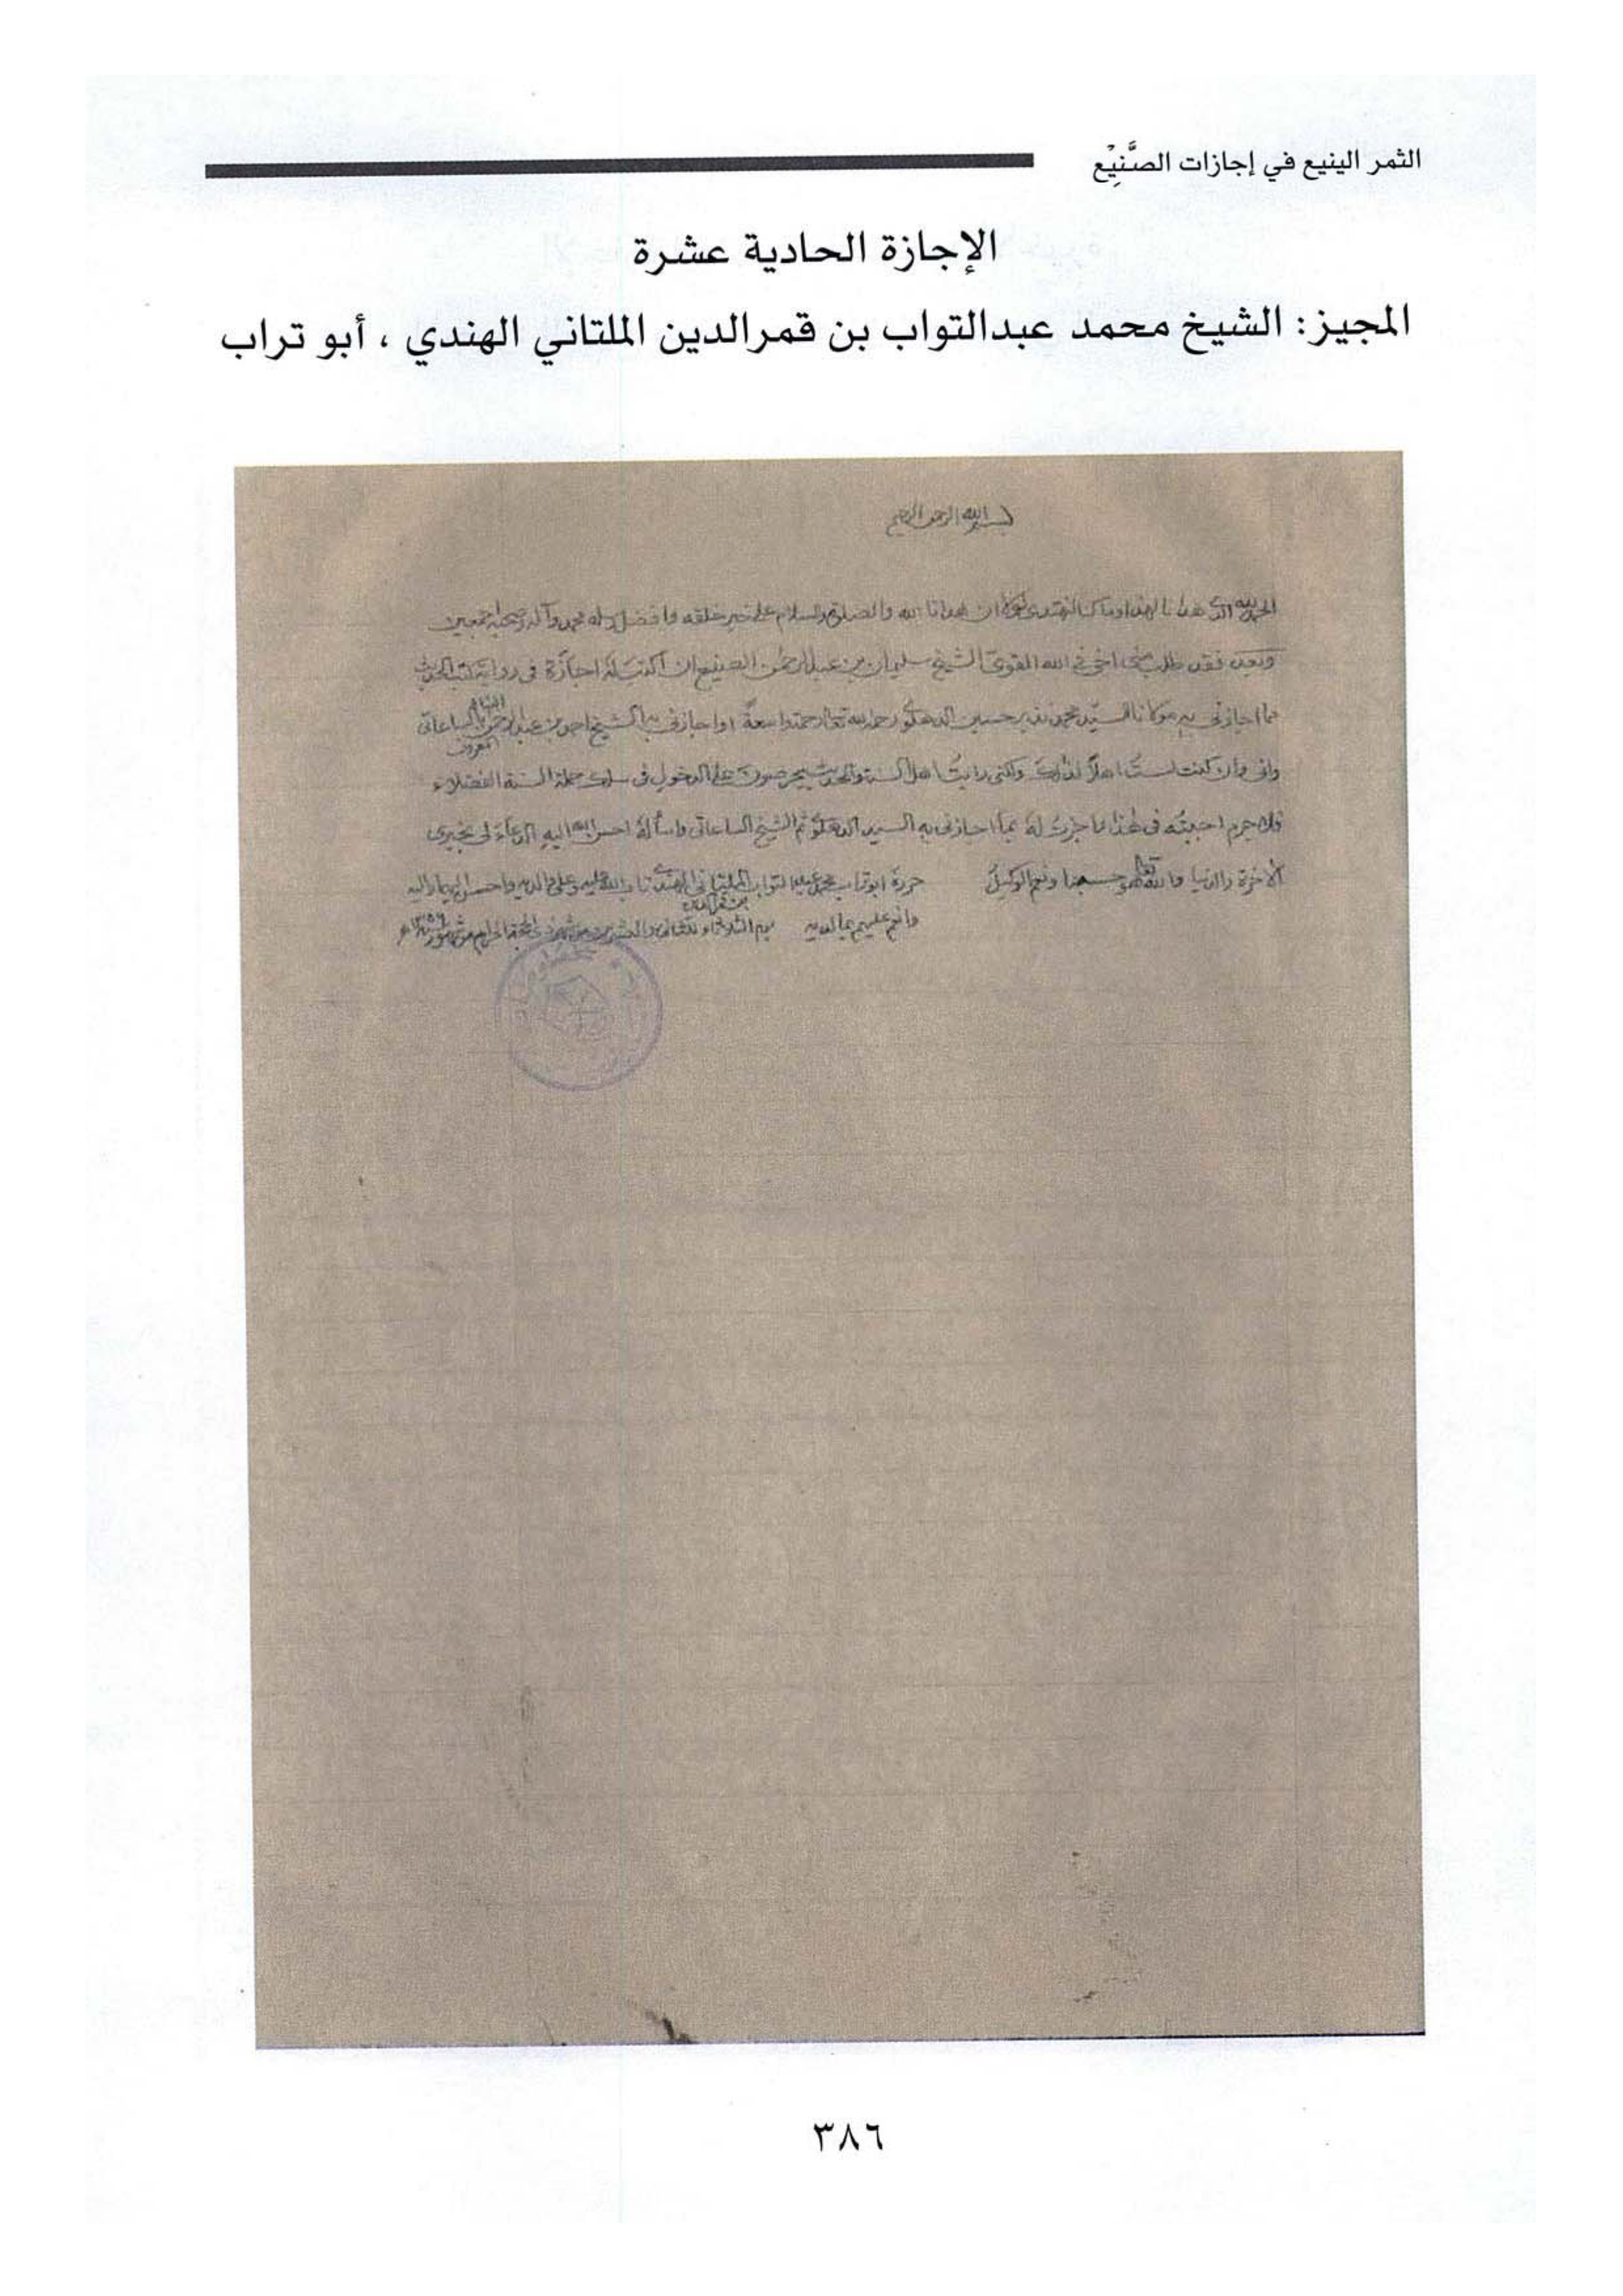 الثمر الينيع في إجازات الصَّنِيْع
الإجازة الحادية عشرة
المجيز: الشيخ محمد عبدالتواب بن قمرالدين الملتاني الهندي ، أبو تراب
بسم الله الرحمن الرحيم
الحمد لله الذي هدانا لهذا وما كنا لنهتدي لولا ان هدانا الله والصلوة والسلام على خير خلقه وافضل رسله محمد وآله وصحبه اجمعين
وبعد فقد طلب مني اخي في الله القوي الشيخ سليمان بن عبدالرحمن الصنيع ان اكتب له اجازة في رواية كتب الحديث
مما اجازني به مولانا السيد محمد نذير حسين الدهلوي رحمه الله تعالى رحمة واسعة واجازني به الشيخ احمد بن عبدالرحمن البنا المعروف بالساعاتي
واني وان كنت لست اهلا لذلك ولكني رايت اهل السنة والحديث يحرصون على الدخول في سلك حملة السنة الفضلاء
فلا جرم اجبته في هذا فاجزت له بما اجازني به السيد الدهلوي ثم الشيخ الساعاتي واسأله احسن الله اليه الدعاء لي بخيري
الآخرة والدنيا والله تعالى هو حسبنا ونعم الوكيل حرره ابوتراب محمد عبدالتواب الملتاني الهندي بن قمرالدين تاب الله عليه وعلى والديه واحسن اليهما واليه
وانعم عليهم بما لديه يوم الثلاثاء الثاني والعشرين من شهر ذي الحجة الحرام من شهور ١٣٥٦
٣٨٦